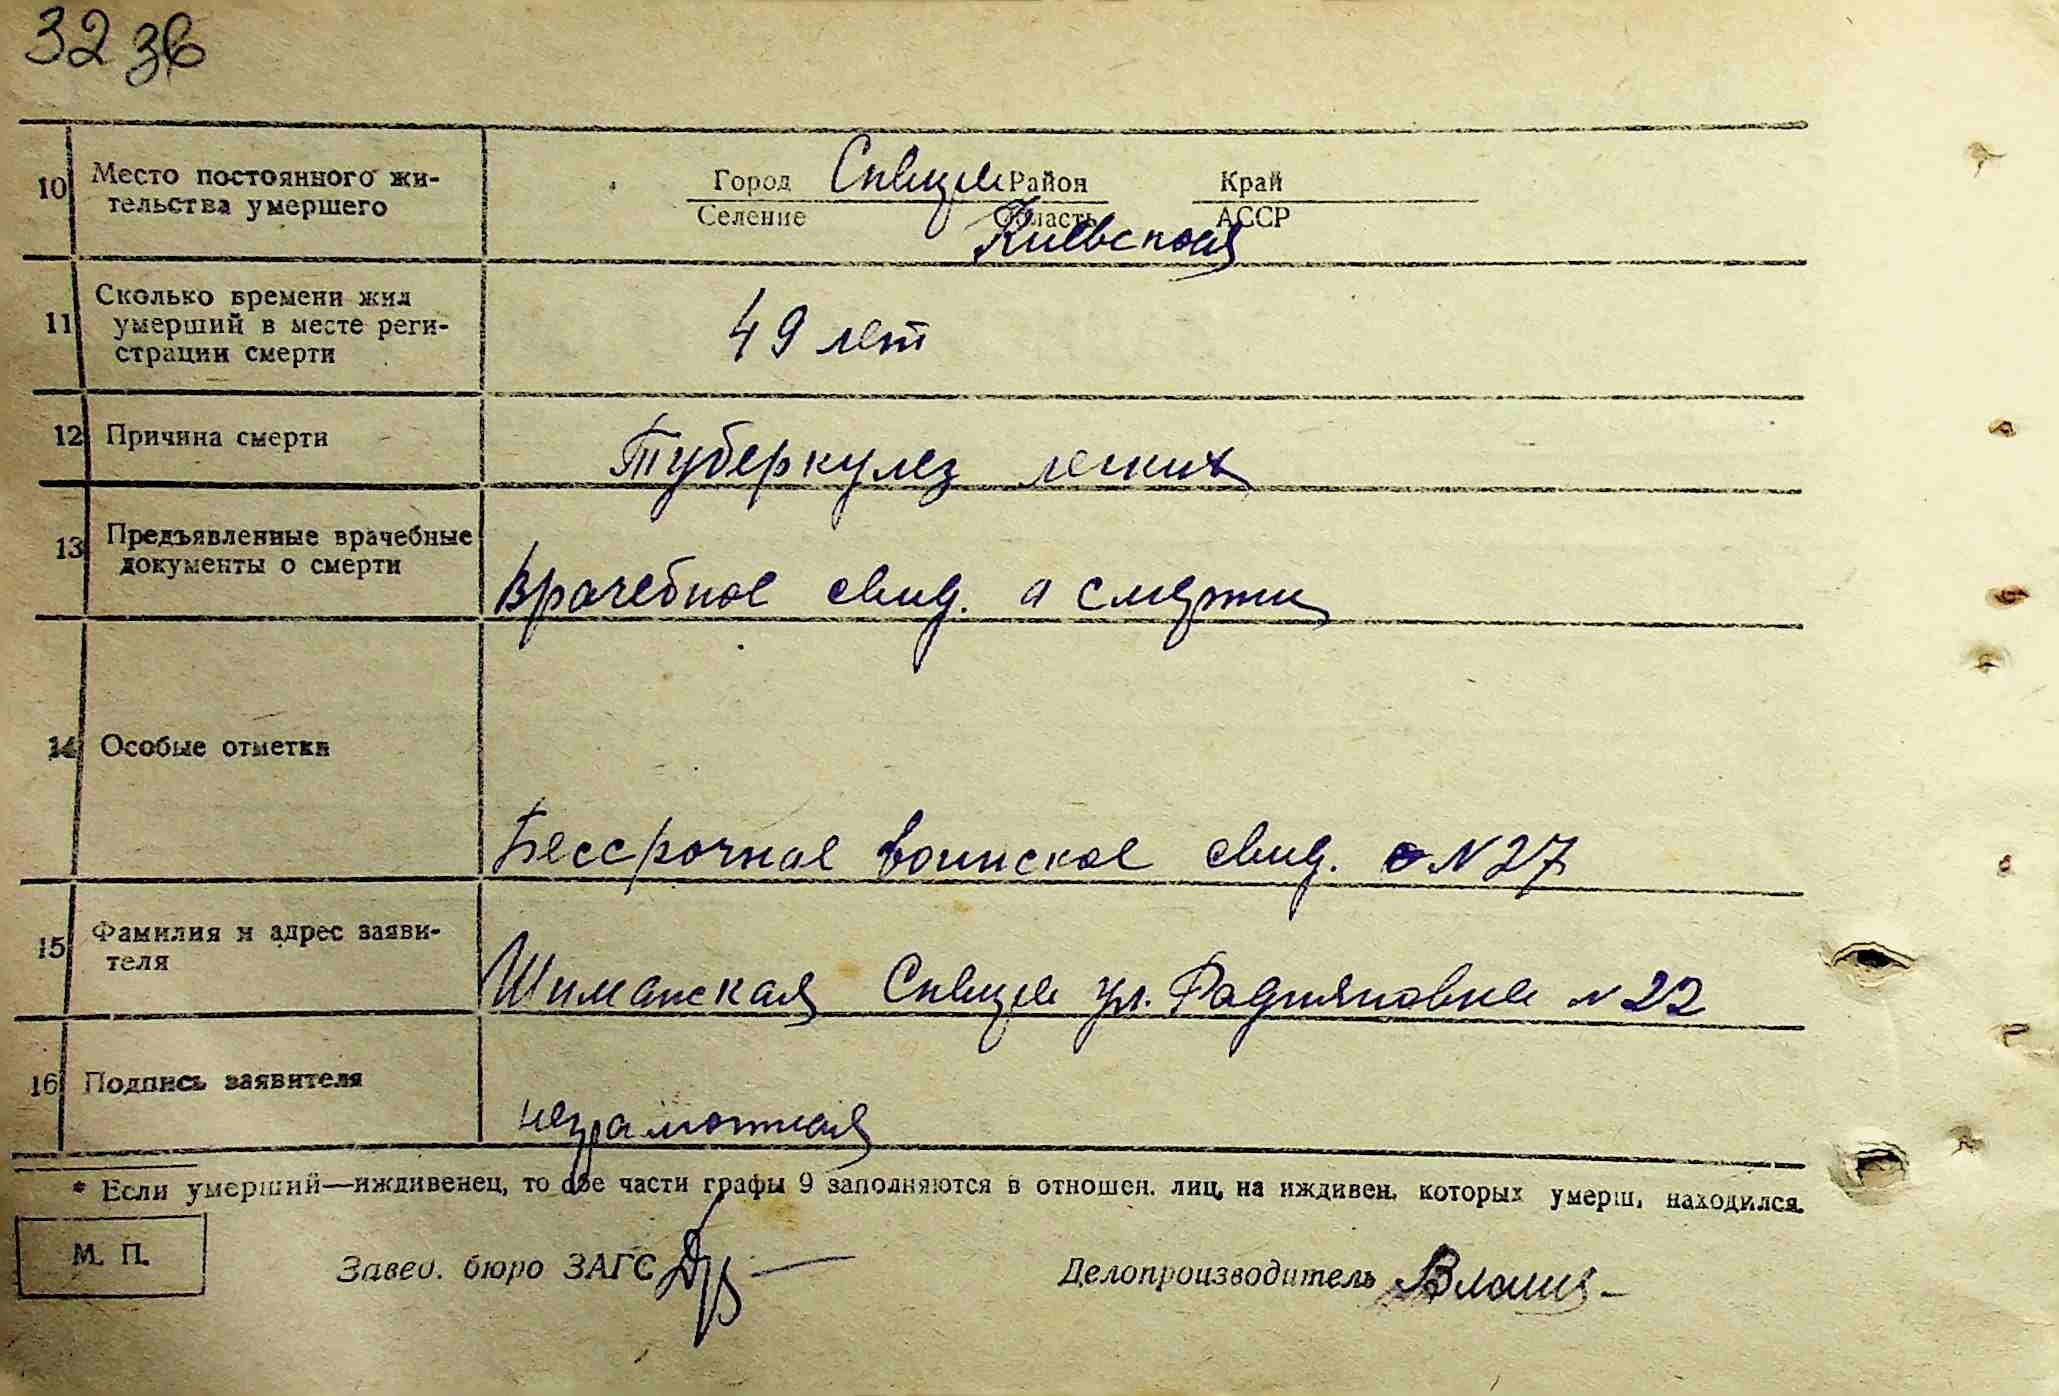 32 зв
10 Место постоянного жи-
тельства умершего
Город Сквира Район Край
Селение Область АССР
Киевская
11 Сколько времени жил
умерший в месте реги-
страции смерти
49 лет
12 Причина смерти
Туберкулез легких
13 Предъявленные врачебные
документы о смерти
Врачебное свид. о смерти
14 Особые отметки
Бессрочное воинское свид. № 27
15 Фамилия и адрес заяви-
теля
Шиманская Сквира ул. № 22
16 Подпись заявителя
неграмотная
* Если умерший—иждивенец, то обе части графы 9 заполняются в отношен. лиц, на иждивен. которых умерш. находился.
М. П.
Завед. бюро ЗАГС
Делопроизводитель